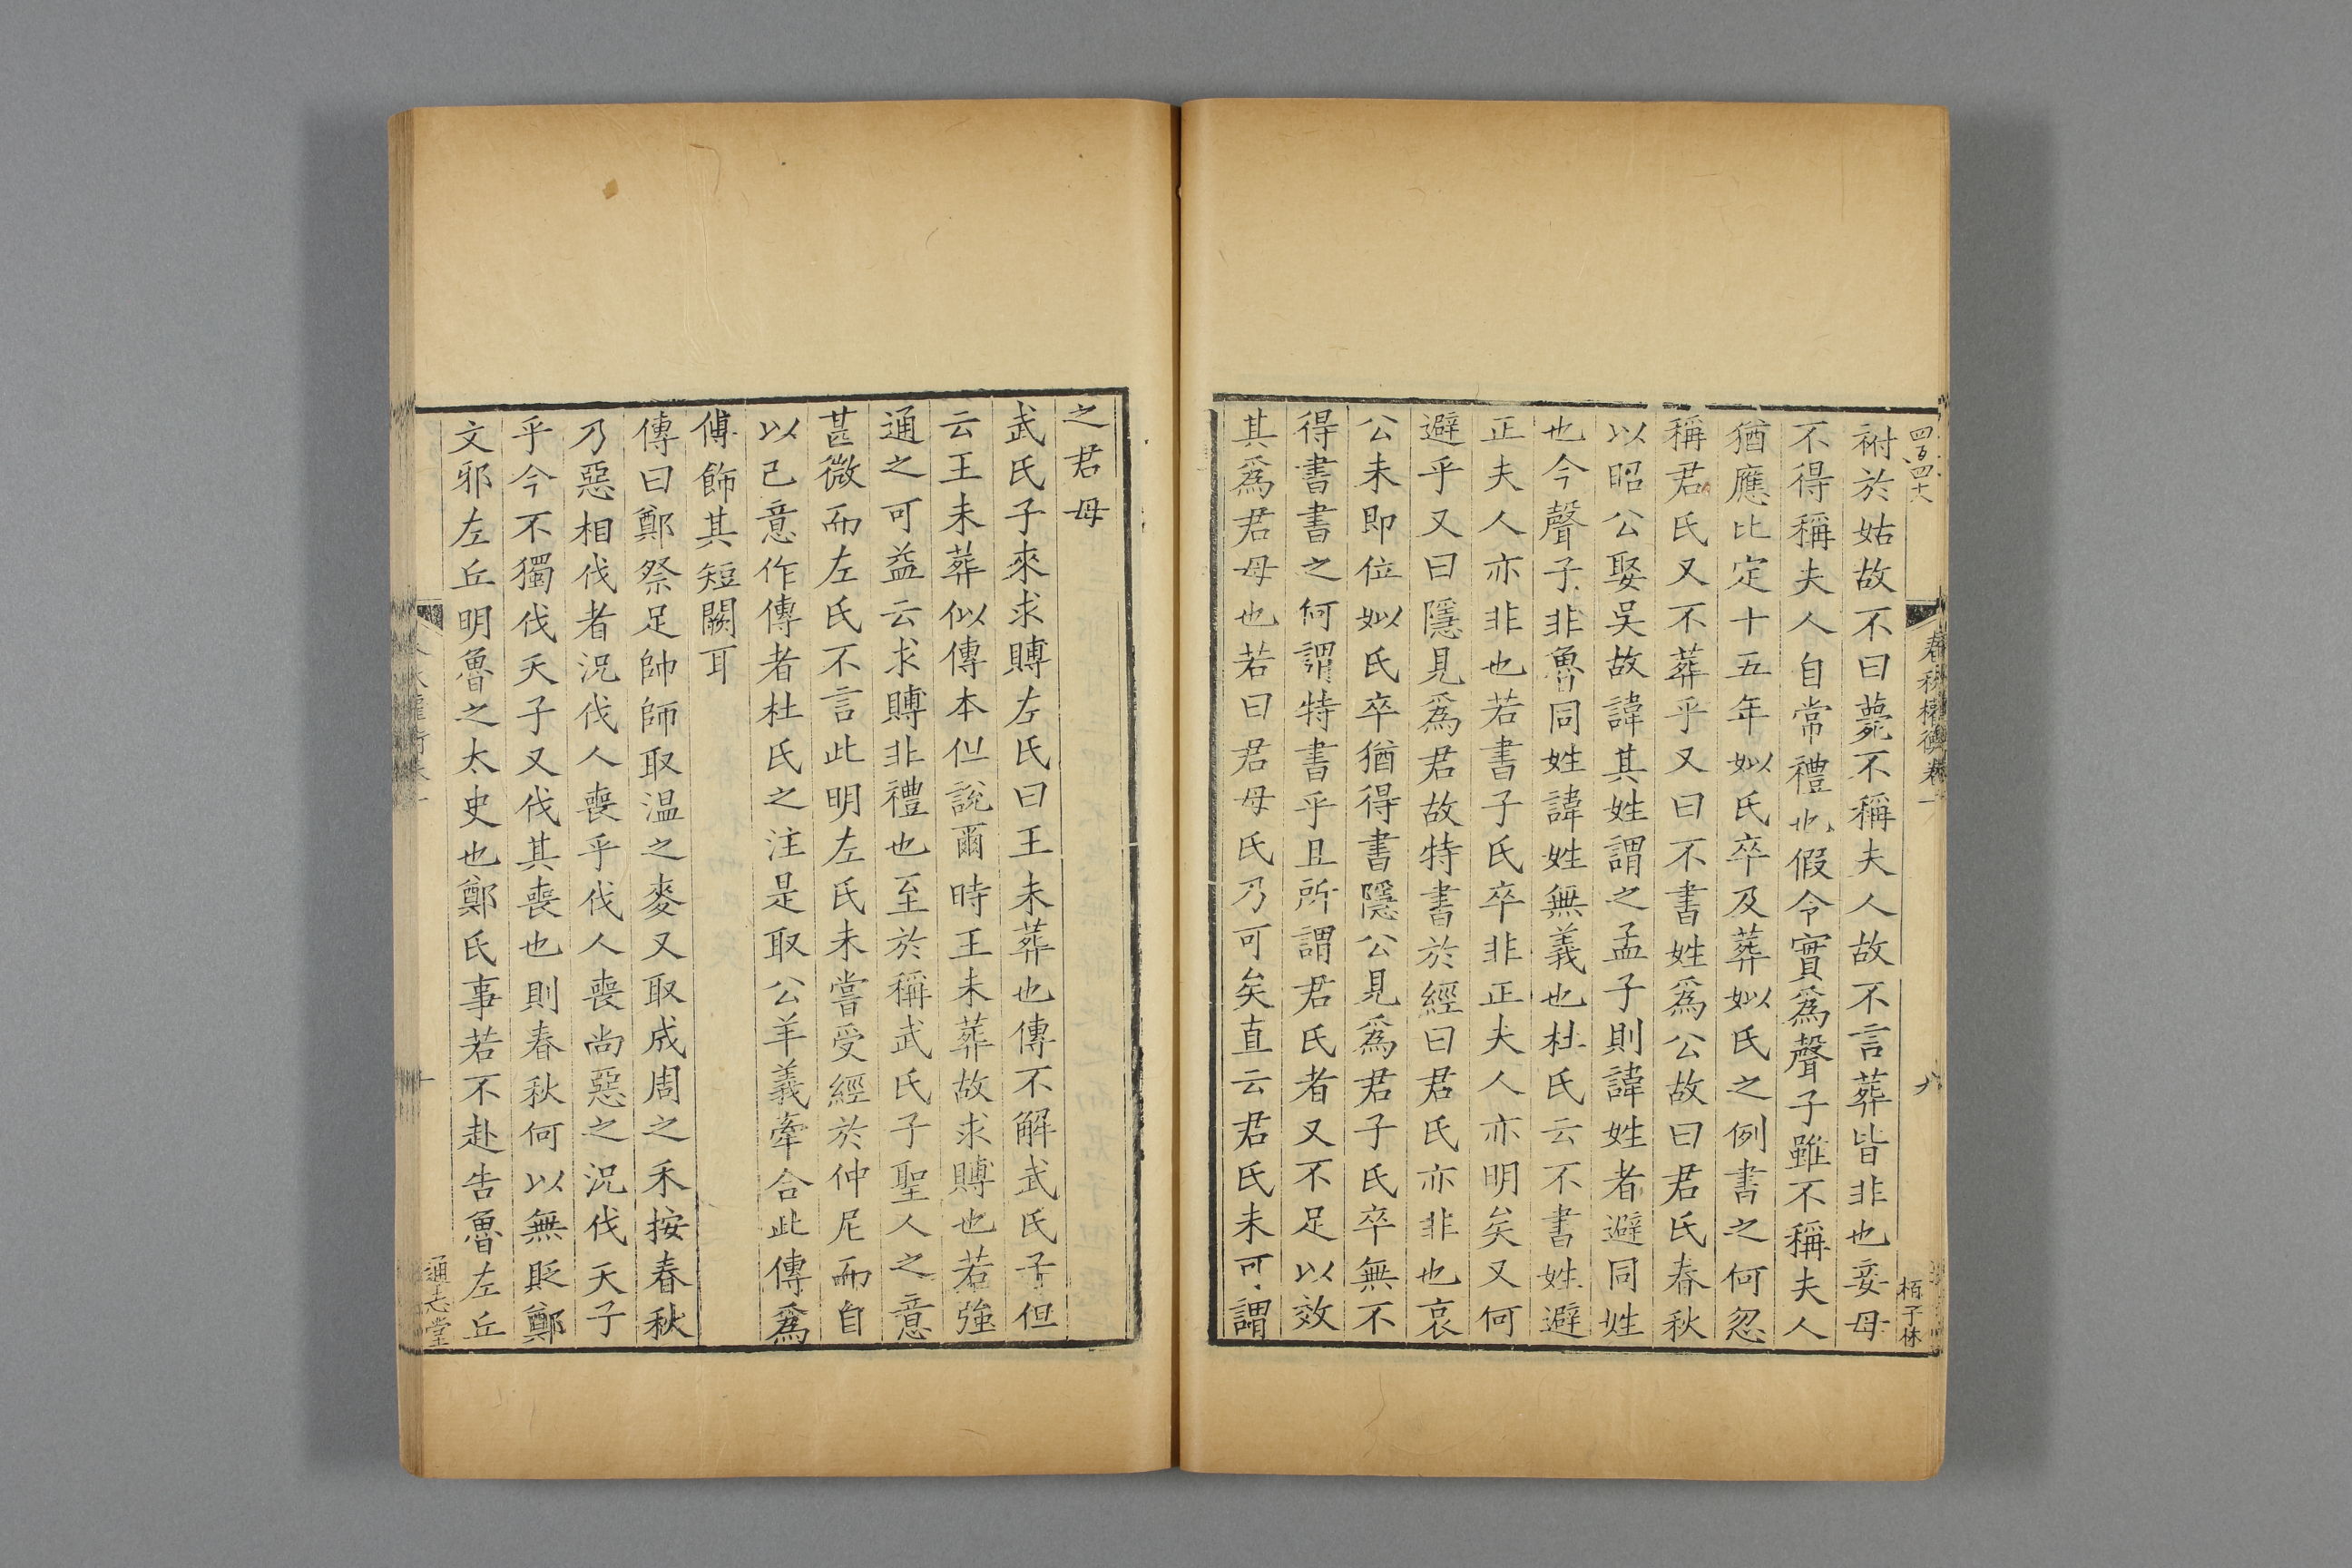 四百四十六
春秋權衡卷一
八
栢子休
祔於姑故不曰薨不稱夫人故不言葬皆非也妾母
不得稱夫人自常禮也假令實爲聲子雖不稱夫人
猶應比定十五年姒氏卒及葬姒氏之例書之何忽
稱君氏又不葬乎又曰不書姓爲公故曰君氏春秋
以昭公娶吳故諱其姓謂之孟子則諱姓者避同姓
也今聲子非魯同姓諱姓無義也杜氏云不書姓避
正夫人亦非也若書子氏卒非正夫人亦明矣又何
避乎又曰隱見爲君故特書於經曰君氏亦非也哀
公未即位姒氏卒猶得書隱公見爲君子氏卒無不
得書書之何謂特書乎且所謂君氏者又不足以效
其爲君母也若曰君母氏乃可矣直云君氏未可謂
之君母
武氏子來求賻左氏曰王未葬也傳不解武氏子但
云王未葬似傳本但說爾時王未葬故求賻也若強
通之可益云求賻非禮也至於稱武氏子聖人之意
甚微而左氏不言此明左氏未嘗受經於仲尼而自
以己意作傳者杜氏之注是取公羊義牽合此傳爲
傅飾其短闕耳
傳曰鄭祭足帥師取温之麥又取成周之禾按春秋
乃惡相伐者況伐人喪乎伐人喪尚惡之況伐天子
乎今不獨伐天子又伐其喪也則春秋何以無貶鄭
文邪左丘明魯之太史也鄭氏事若不赴告魯左丘
通志堂